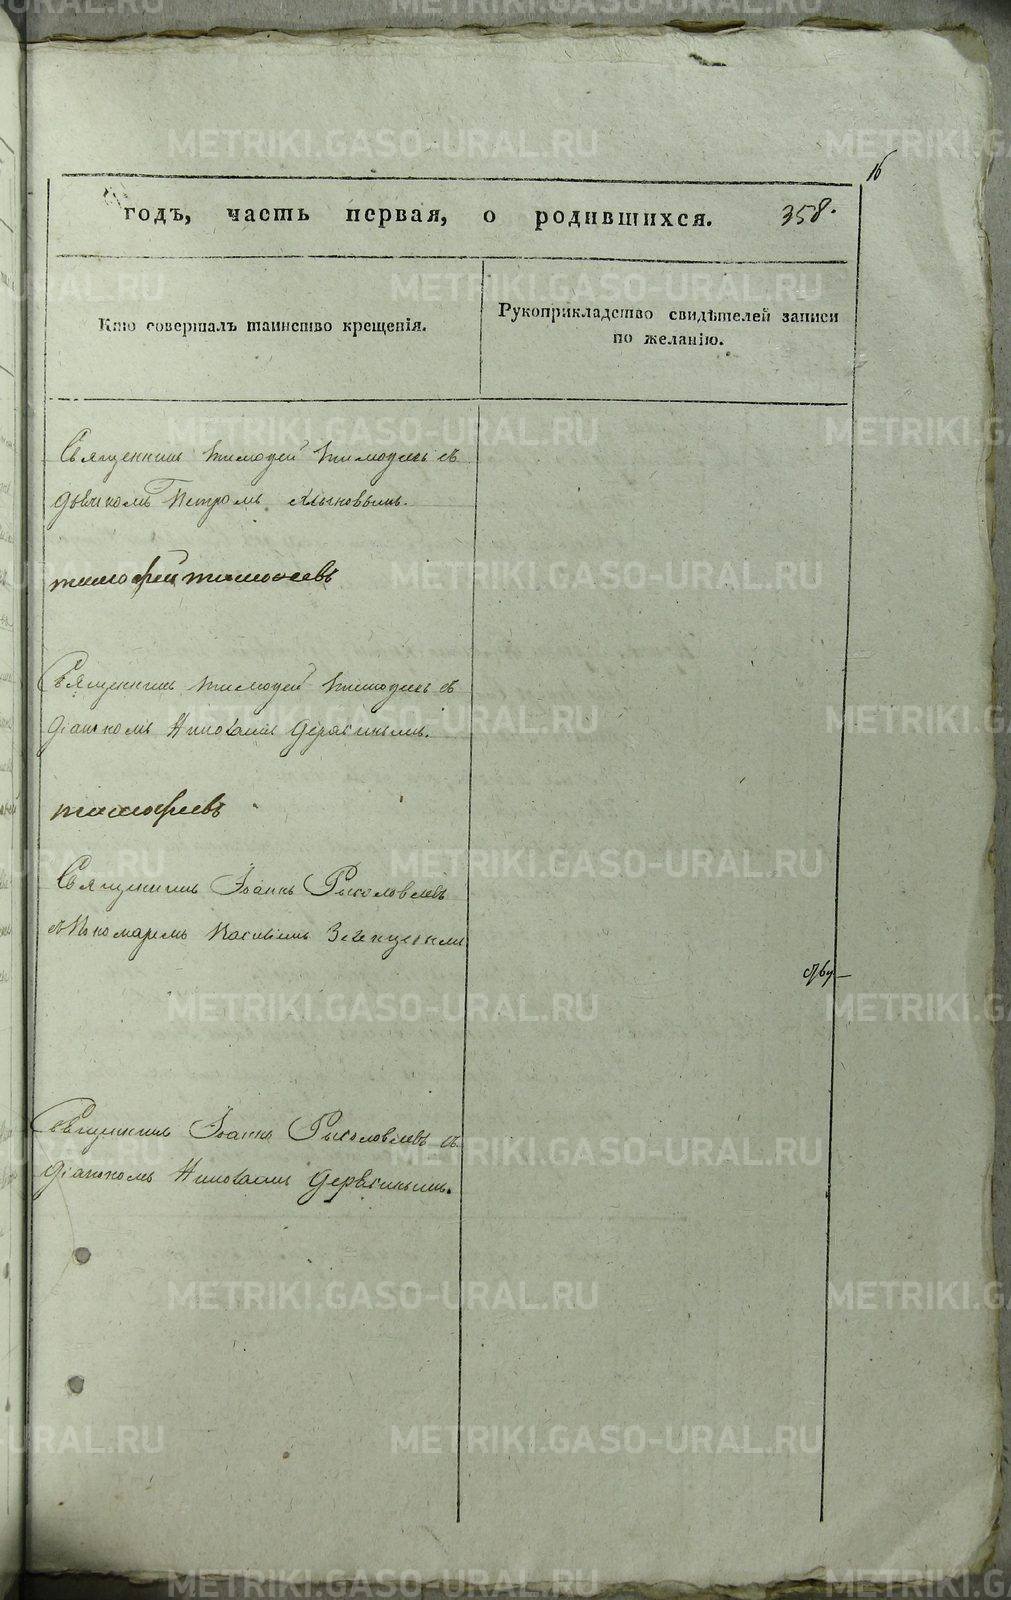 16
годъ, часть первая, о родившихся. 358.
Кто совершалъ таинство крещенія.
Рукоприкладство свидѣтелей записи
по желанію.
Священникъ Тимофей Тимофеевъ съ
дьячкомъ Петромъ
тимофей тимофеевъ
Священникъ Тимофей Тимофеевъ съ
діакономъ Николаемъ Дерябинымъ.
тимофеевъ
Священникъ Іоаннъ Рыболовлевъ
съ Пономаремъ
Священникъ Іоаннъ Рыболовлевъ съ
діакономъ Николаемъ Дерябинымъ.
METRIKI.GASO-URAL.RU